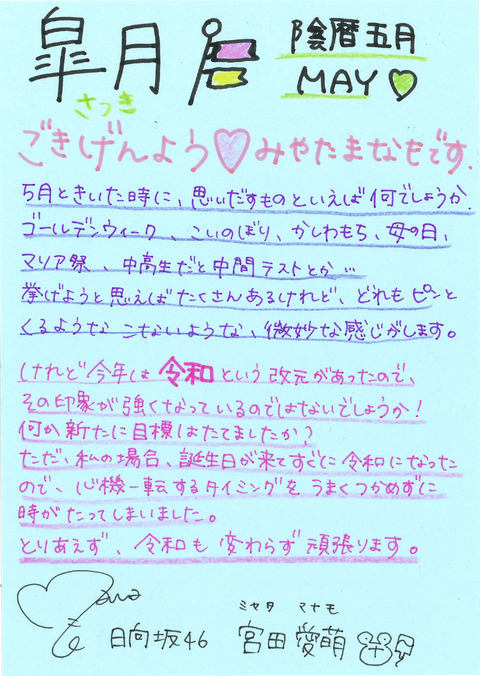 皐月
さつき
陰暦五月
MAY
ごきげんよう♡みやたまなもです.
5月ときいた時に、思いだすものといえば何でしょうか.
ゴールデンウィーク、こいのぼり、かしわもち、母の日、
マリア祭、中高生だと中間テストとか…
挙げようと思えばたくさんあるけれど、どれもピンと
くるような こないような、微妙な感じがします。
けれど今年は令和という改元があったので、
その印象が強くなっているのではないでしょうか!
何か新たに目標はたてましたか?
ただ、私の場合、誕生日が来てすぐに令和になった
ので、心機一転するタイミングを うまくつかめずに
時がたってしまいました。
とりあえず、令和も変わらず頑張ります。
ミヤタ マナモ
日向坂46 宮田愛萌